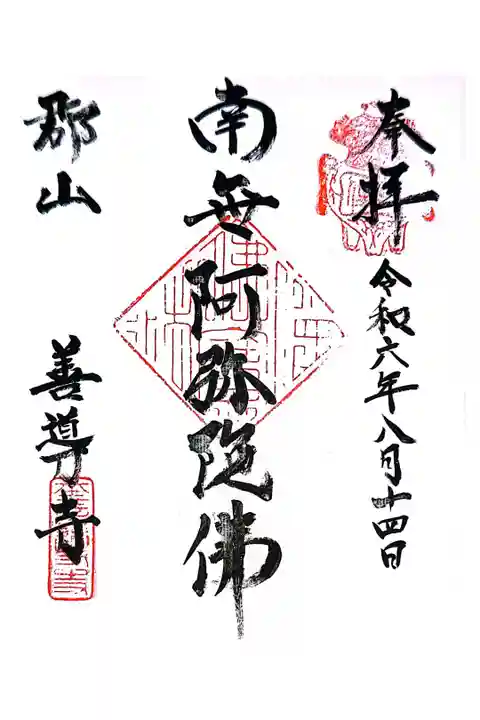 奉拝
令和六年八月十四日
南無阿弥陀佛
郡山
善導寺
善導寺